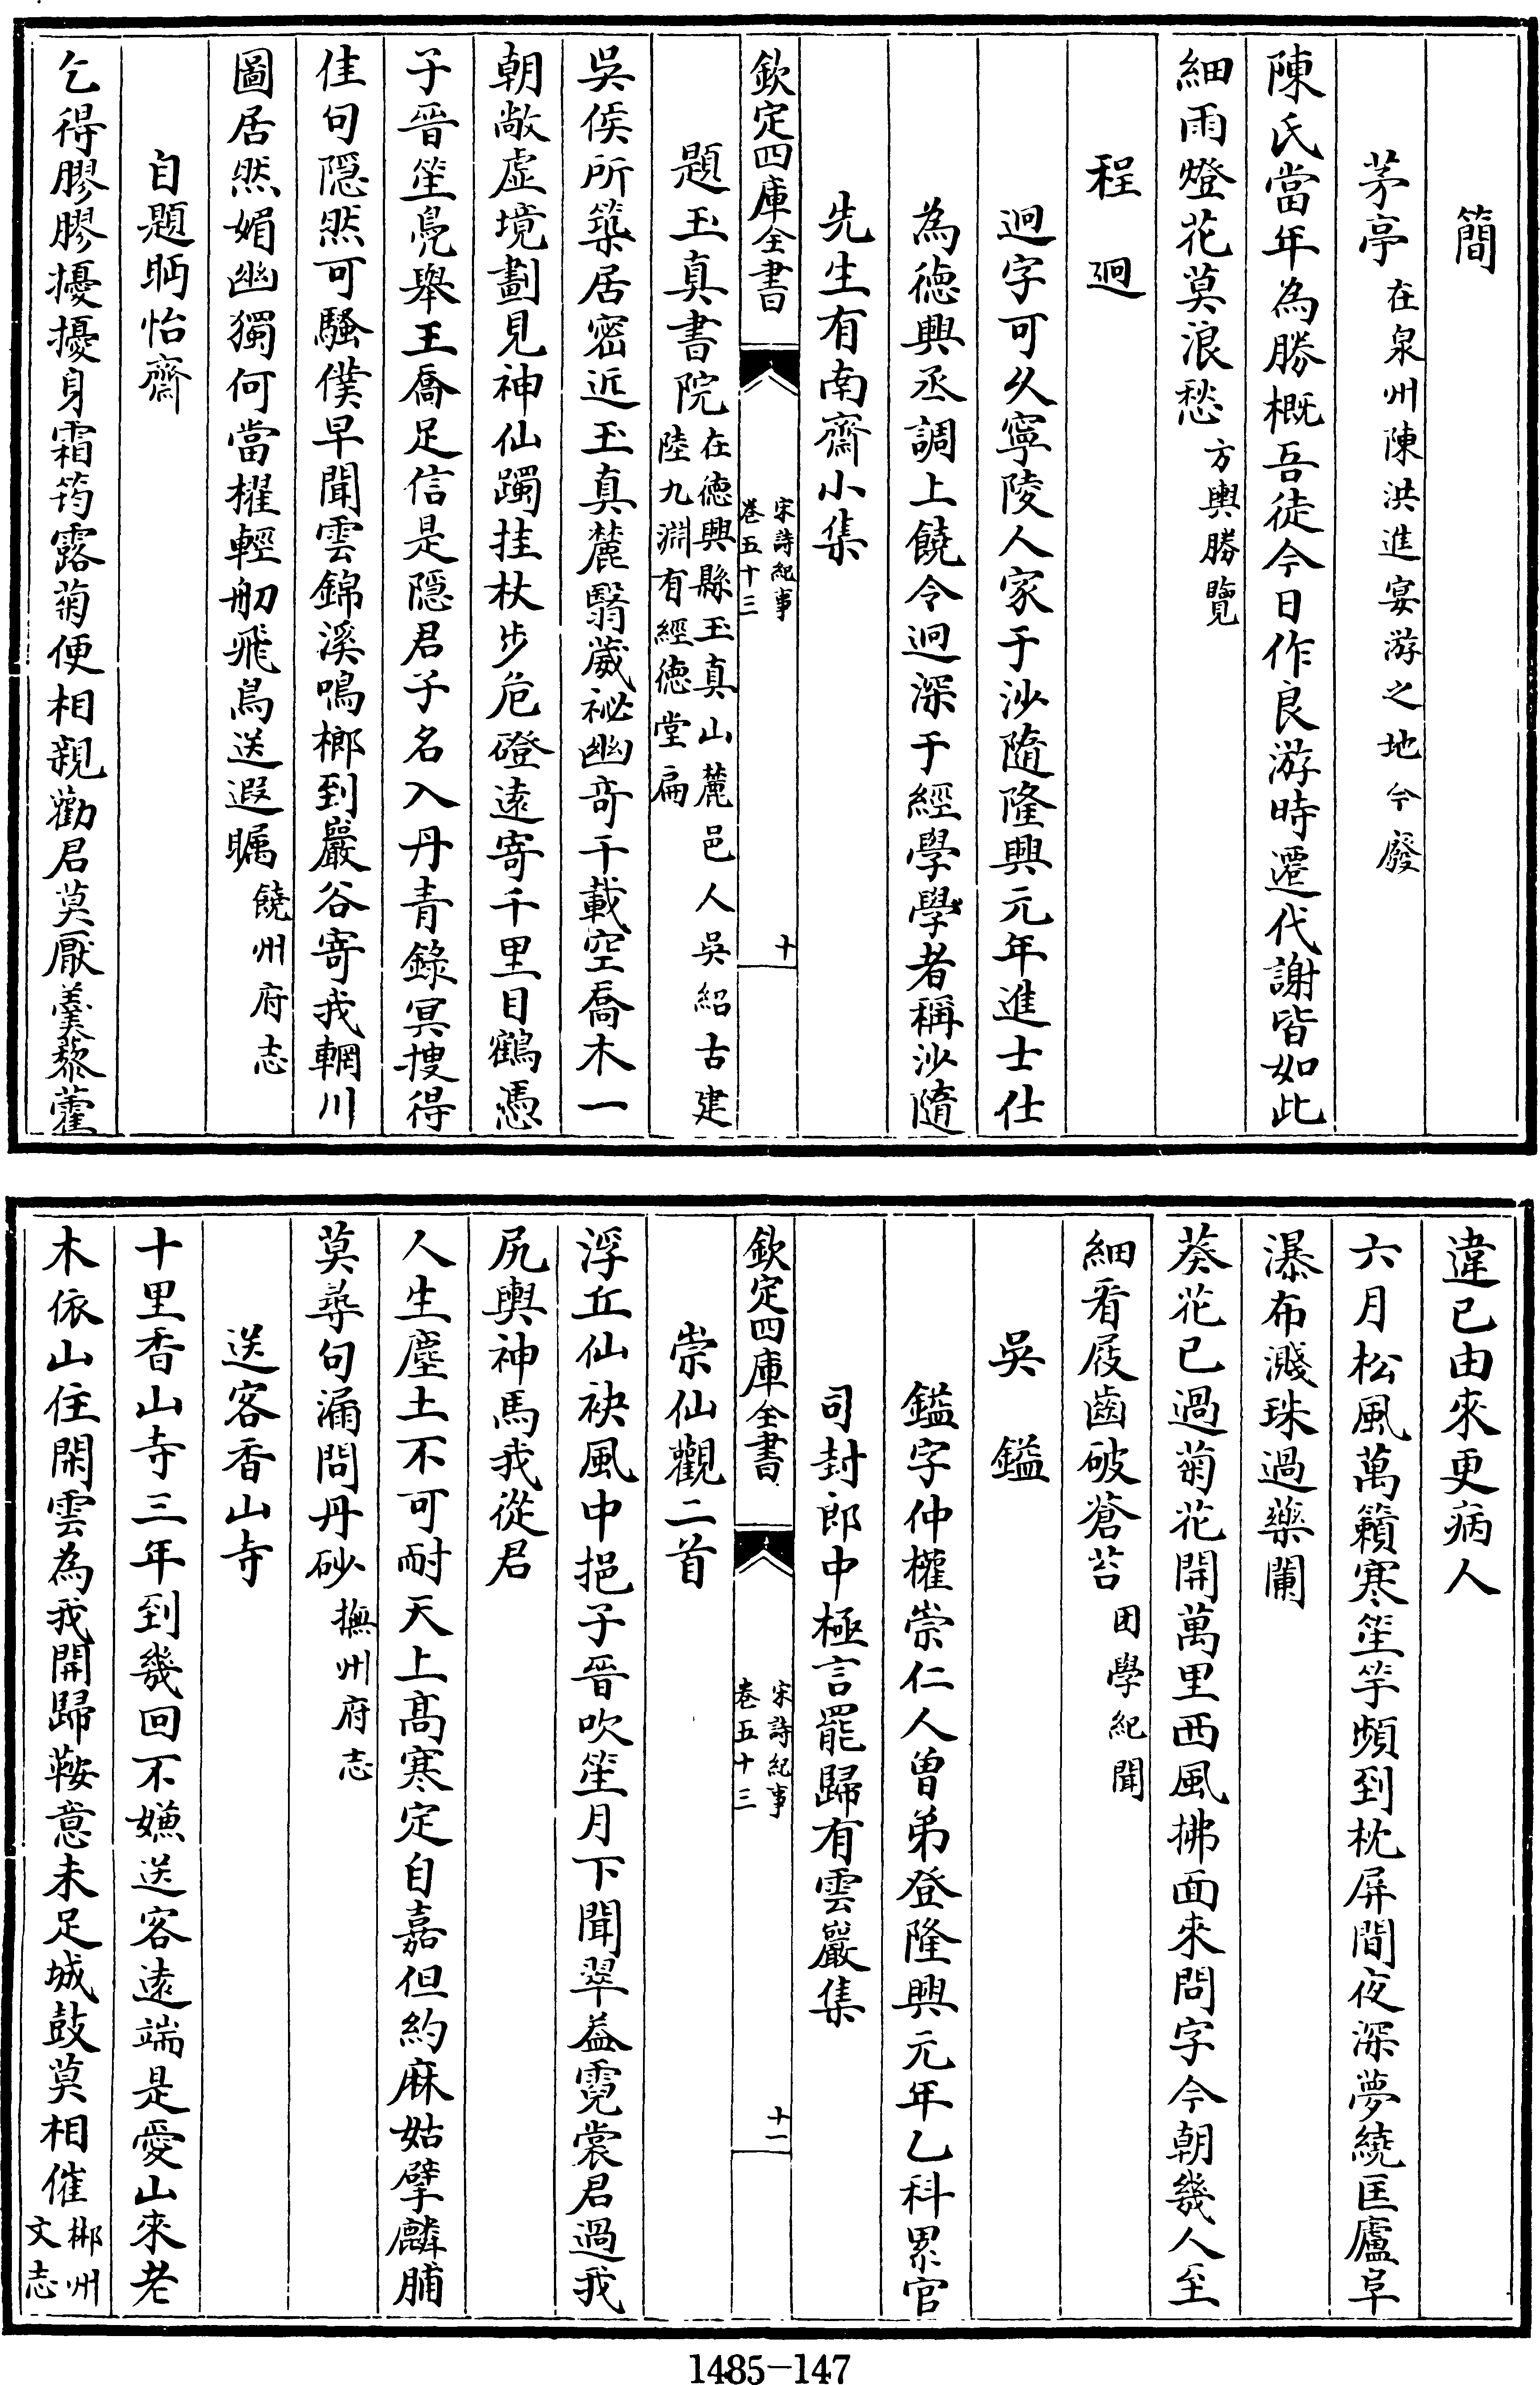 簡
茅亭在泉州陳洪進宴游之地今廢
陳氏當年為勝概吾徒今日作良游時遷代謝皆如此
細雨燈花莫浪愁方輿勝覽
程迥
迥字可久寧陵人家于沙隨隆興元年進士仕
為德興丞調上饒令迥深于經學學者稱沙隨
先生有南齋小集
欽定四庫全書
宋詩紀事
卷五十三
十
題玉真書院在德興縣玉真山麓邑人吳紹古建
陸九淵有經德堂扁
吳侯所築居密近玉真麓翳葳祕幽奇千載空喬木一
朝敞虛境劃見神仙躅挂杖步危磴遠寄千里目鶴憑
子晉笙鳧舉王喬足信是隱君子名入丹青錄冥搜得
佳句隱然可騷僕早聞雲錦溪鳴榔到巖谷寄我輞川
圖居然媚幽獨何當櫂輕舠飛鳥送遐矚饒州府志
自題眄怡齋
乞得膠膠擾擾身霜筠露菊便相親勸君莫厭羹藜藿
違已由來更病人
六月松風萬籟寒笙竽頻到枕屏間夜深夢繞匡廬阜
瀑布濺珠過藥闌
葵花已過菊花開萬里西風拂面來問字今朝幾人至
細看屐齒破蒼苔困學紀聞
吳鎰
鎰字仲權崇仁人曾弟登隆興元年乙科累官
司封郎中極言罷歸有雲巖集
欽定四庫全書
宋詩紀事
卷五十三
十一
崇仙觀二首
浮丘仙袂風中挹子晉吹笙月下聞翠蓋霓裳君過我
尻輿神馬我從君
人生塵土不可耐天上高寒定自嘉但約麻姑擘麟脯
莫尋句漏問丹砂撫州府志
送客香山寺
十里香山寺三年到幾回不嫌送客遠端是愛山來老
木依山住閑雲為我開歸鞍意未足城鼓莫相催郴州
文志
1485-147